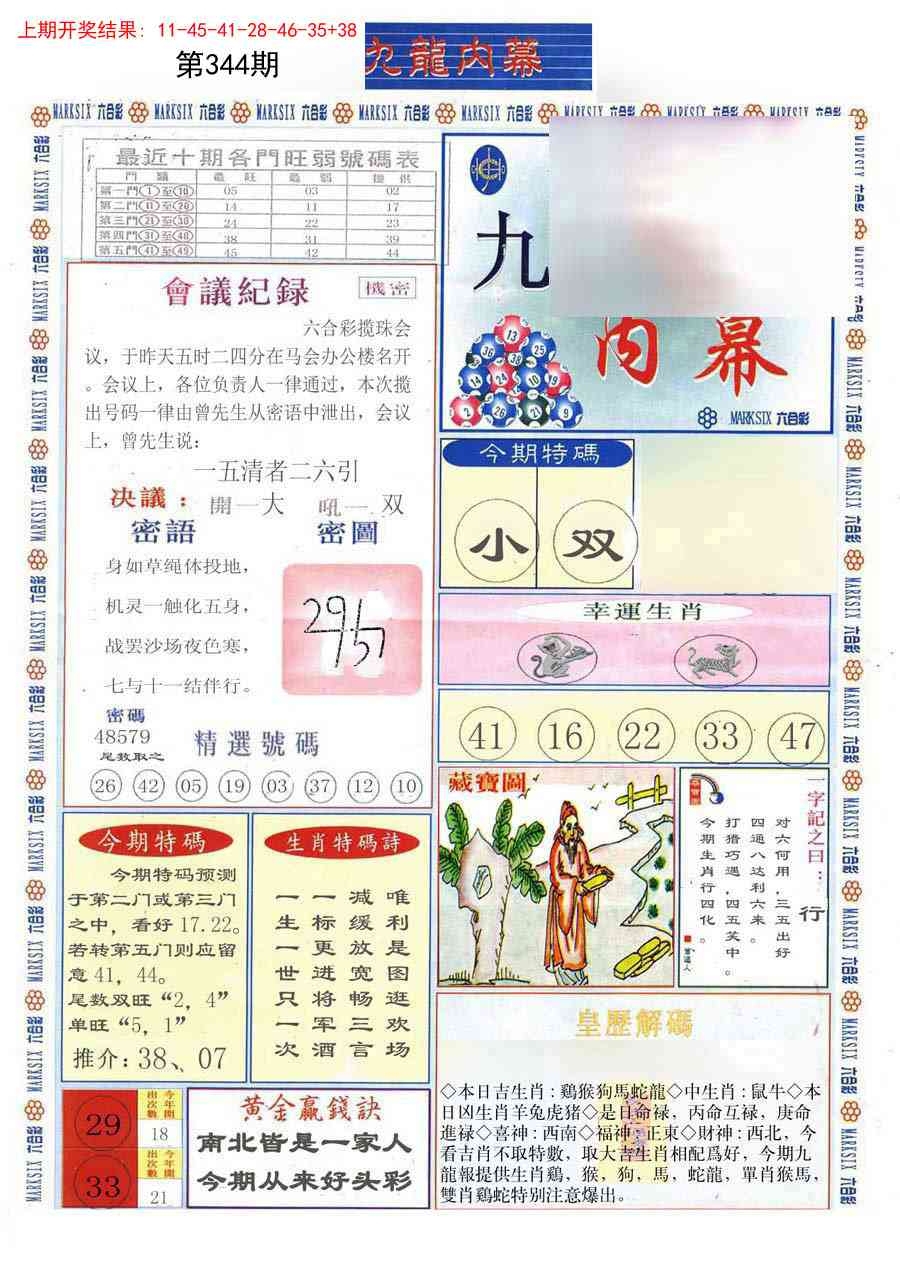 上期开奖结果: 11-45-41-28-46-35+38
第344期
九龍内幕
最近十期各門旺弱號碼表
門 類 最 旺 最 弱 提 供
第一門①至⑩ 05 03 02
第二門⑪至⑳ 14 11 17
第三門㉑至㉚ 24 22 23
第四門㉛至㊵ 38 31 39
第五門㊶至㊾ 45 42 44
會議紀録
機密
六合彩揽珠会
议，于昨天五时二四分在马会办公楼名开
。会议上，各位负责人一律通过，本次揽
出号码一律由曾先生从密语中泄出，会议
上，曾先生说：
一五清者二六引
决議：開一大 吼一双
密語
密圖
身如草绳休投地，
机灵一触化五身，
战罢沙场夜色寒，
七与十一结伴行。
密碼
48579
尾数取之
精選號碼
26 42 05 19 03 37 12 10
九
内幕
13
36 38 25
14 24 10 19
2 26 21 9
MARKSIX 六合彩
今期特碼
小 双
幸運生肖
41 16 22 33 47
藏寶圖
一字記之曰：行
对六何用，三五出好
四通八达利六来。
打猎巧遇，四五芙中。
今期生肖行四化。
曾道人
今期特碼
今期特码预测
于第二门或第三门
之中，看好 17.22。
若转第五门则应留
意 41，44。
尾数双旺“2，4”
单旺“5，1”
推介：38、07
生肖特碼詩
唯利是图逛欢场
减缓放宽畅三言
一标更进将军酒
一生一世只一次
29
今年開出次數
18
33
今年開出次數
21
黄金赢錢訣
南北皆是一家人
今期从来好头彩
皇歷解碼
◇本日吉生肖：鷄猴狗馬蛇龍◇中生肖：鼠牛◇本
日凶生肖羊兔虎猪◇是日命禄，丙命互禄，庚命
進禄◇喜神：西南◇福神：正東◇財神：西北，今
看吉肖不取特數，取大吉生肖相配爲好，今期九
龍報提供生肖鷄，猴，狗，馬，蛇龍，單肖猴馬，
雙肖鷄蛇特别注意爆出。